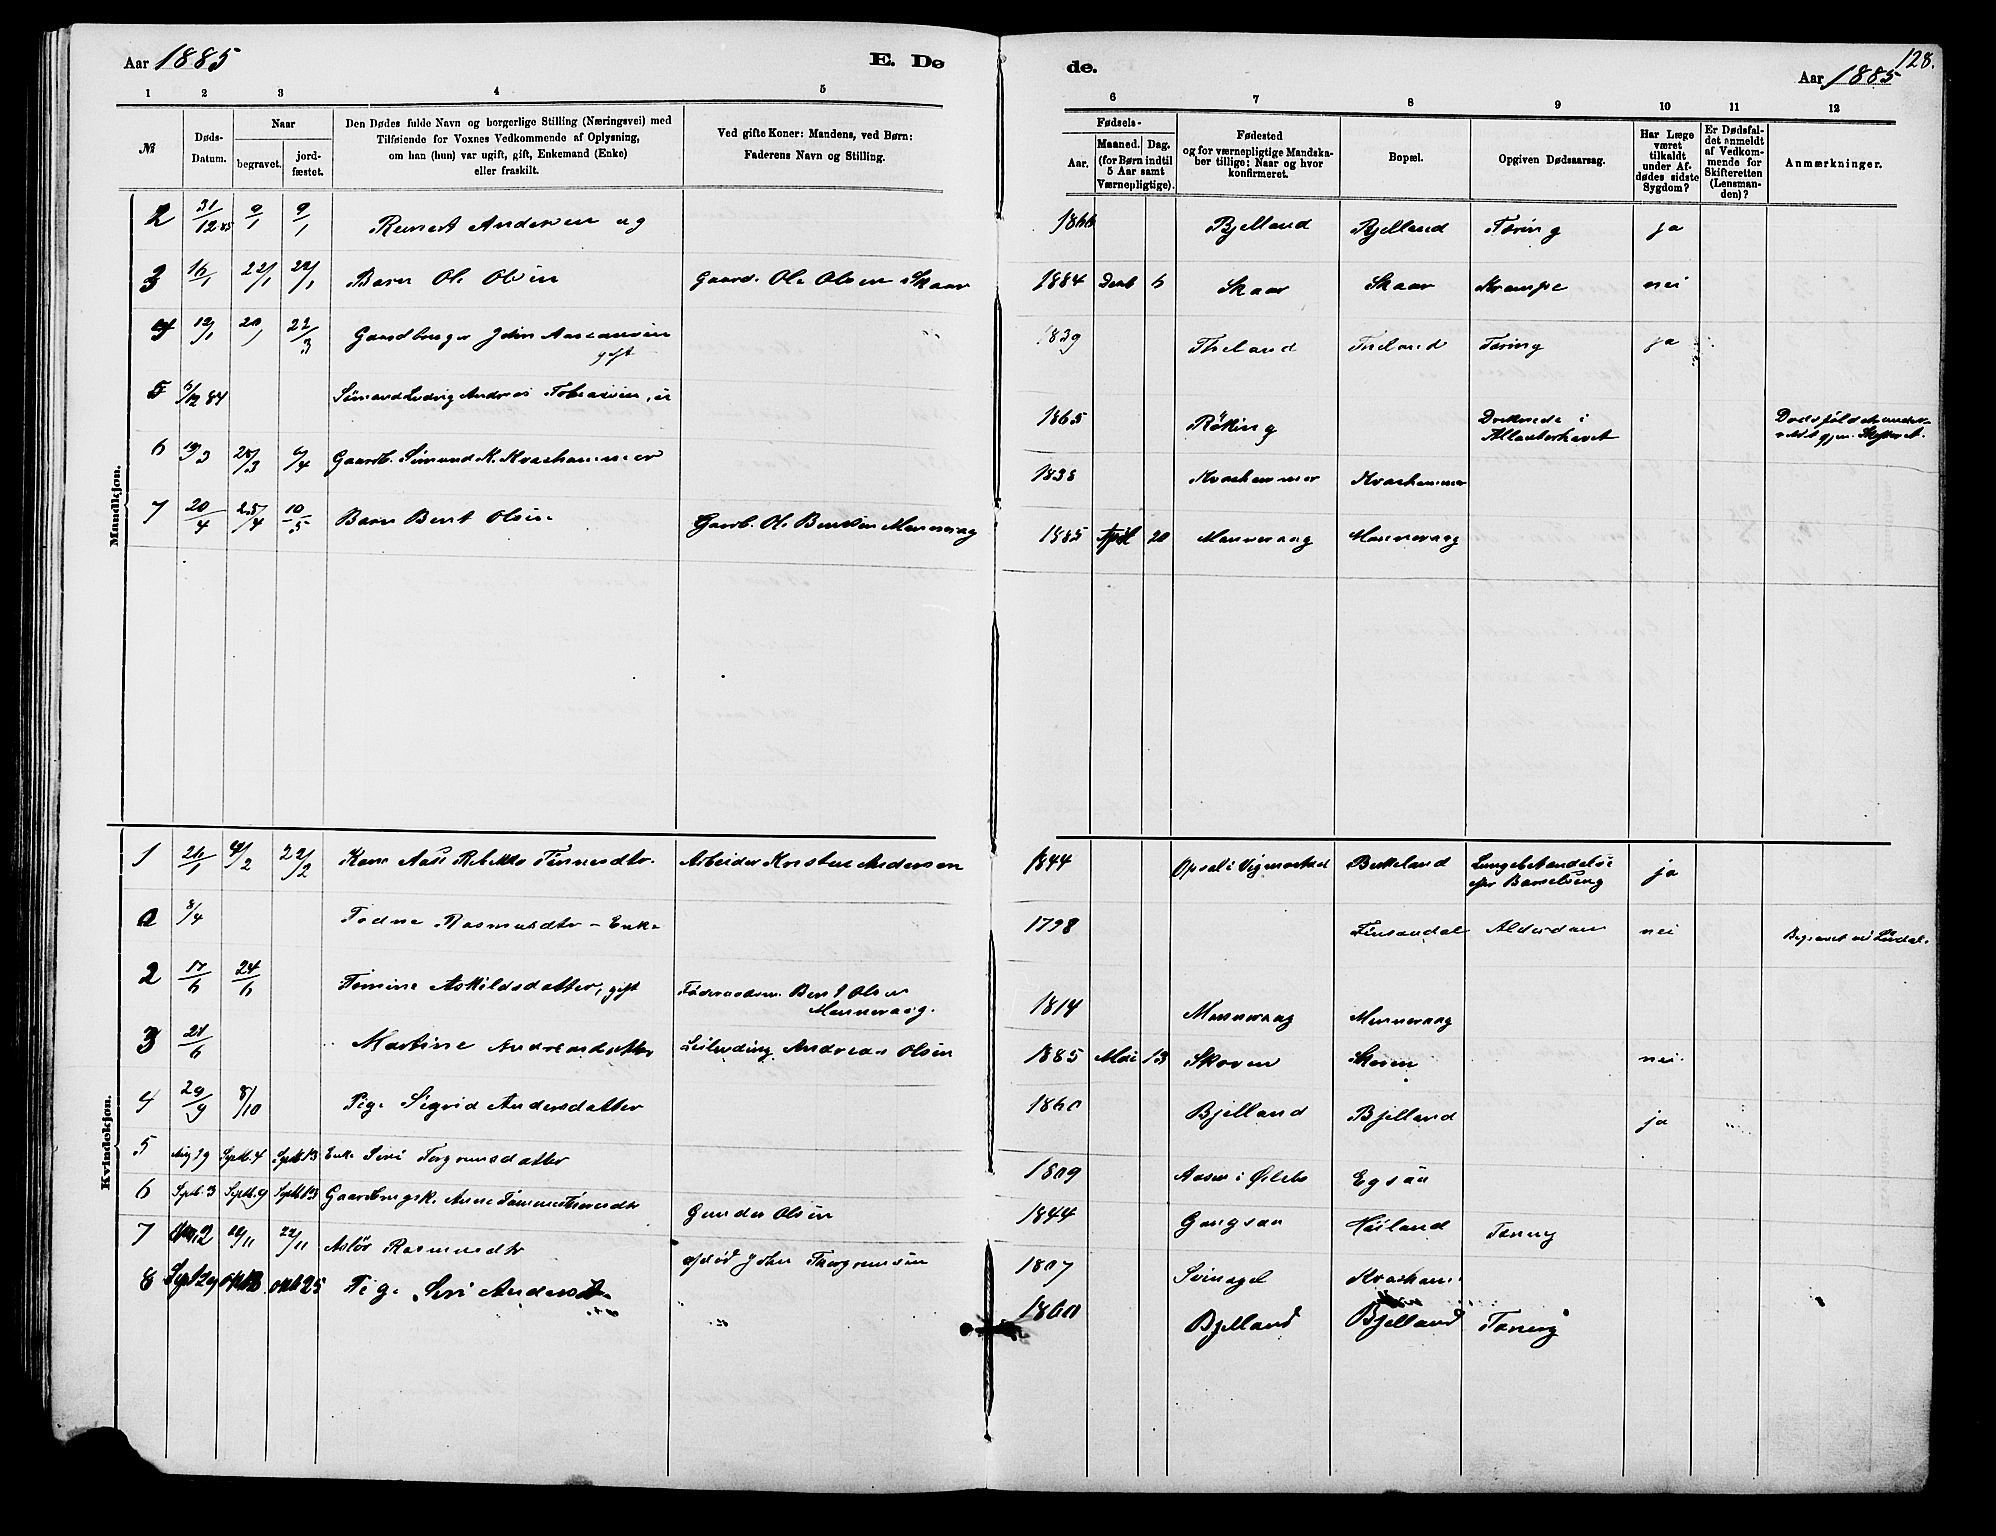 Aar 1885
E. Dø
de.
128.
Aar 1885
1 2 3 4 5
6 7 8 9 10 11 12
№
Døds-Datum.
Naar
begravet.
jord-fæstet.
Den Dødes fulde Navn og borgerlige Stilling (Næringsvei) med
Tilføiende for Voxnes Vedkommende af Oplysning,
om han (hun) var ugift, gift, Enkemand (Enke)
eller fraskilt.
Ved gifte Koner: Mandens, ved Børn:
Faderens Navn og Stilling.
Fødsels-
Aar.
Maaned. Dag.
(for Børn indtil
5 Aar samt
Værnepligtige).
Fødested
og for værnepligtige Mandska-
ber tillige: Naar og hvor
konfirmeret.
Bopæl.
Opgiven Dødsaarsag.
Har Læge
været
tilkaldt
under Af-
dødes sidste
Sygdom?
Er Dødsfal-
det anmeldt
af Vedkom-
mende for
Skifteretten
(Lensman-
den)?
Anmærkninger.
Mandkjøn.
2 31/12 85 9/1 9/1 Reinert Andersen ug 1866 Bjelland Bjelland Tæring ja
3 16/1 22/1 22/1 Barn Ole Olsen Gaardb. Ole Olsen Skaar 1884 Decb 6 Skaar Skaar Krampe nei
4 22/3 Gaardbruger John 1839 Tæring ja
gift
5 /12 84 Simon Ludvig Andreas Tobiassen, u 1865 Røking Druknede i
Atlanterhavet
6 28/3 Gaardb. Simund K. Kvashammer 1838 Kvashammer Kvashammer
7 20/4 25/4 10/5 Barn Bent Olsen Gaardb. Ole Bentsen Manneraag 1885 April 20 Manneraag Manneraag
Kvindekjøn.
1 26/1 4/2 22/2 Kone Aase Rebekka Tønnesdtr. Arbeider Kristen Andersen 1844 Opsal i Vigmostad Birkeland Lungebetændelse
efter Barselseng ja
0 8/4 Todne Rasmusdtr - Enke 1798 Finsaadal Alderdom nei
2 17/6 24/6 Tomine Askildsdatter, gift Føderaadsm. Bent Olsen
Manneraag. 1814 Manneraag Manneraag
3 21/6 Martine Andreasdatter Leilending Andreas Olsen 1885 Mai 13 Skoven Skoven nei
4 29/9 8/10 Pige Sigrid Andersdatter 1860 Bjelland Bjelland ja
5 Aug 29 Septb. 4 Septb. 13 Enke Siri Torgrimsdatter 1809
6 Septb. 3 Septb. 9 Septb. 13 Gaardbrugsk. Anne Gunder Olsen 1844 Høiland Tæring
7 22/11 Aslør Rasmusdtr afdød John Thorgrimsen 1807
8 Septb 29 Oktb 8 Oktb 25 Pige Siri Andersd. 1860 Bjelland Bjelland Tæring